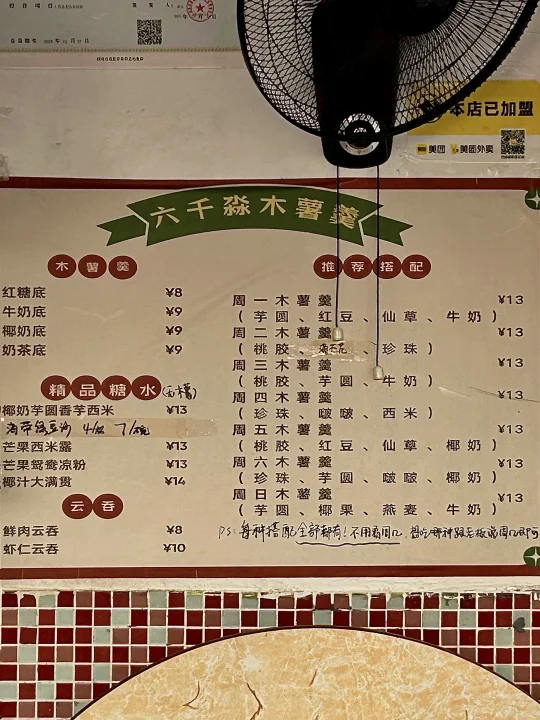 本店已加盟
美团 美团外卖
六千淼木薯羹
木薯羹
红糖底 ¥8
牛奶底 ¥9
椰奶底 ¥9
奶茶底 ¥9
精品糖水
椰奶芋圆香芋西米 ¥13
海带绿豆沙 4/ 7/碗
芒果西米露 ¥13
芒果鸳鸯凉粉 ¥13
椰汁大满贯 ¥14
云吞
鲜肉云吞 ¥8
虾仁云吞 ¥10
推荐搭配
周一木薯羹 ¥13
(芋圆、红豆、仙草、牛奶)
周二木薯羹 ¥13
(桃胶、 、珍珠)
周三木薯羹 ¥13
(桃胶、芋圆、牛奶)
周四木薯羹 ¥13
(珍珠、啵啵、西米)
周五木薯羹 ¥13
(桃胶、红豆、仙草、椰奶)
周六木薯羹 ¥13
(珍珠、芋圆、啵啵、椰奶)
周日木薯羹 ¥13
(芋圆、椰果、燕麦、牛奶)
PS: 每种搭配全部都有!不用看周几,想吃哪种跟老板说周几即可